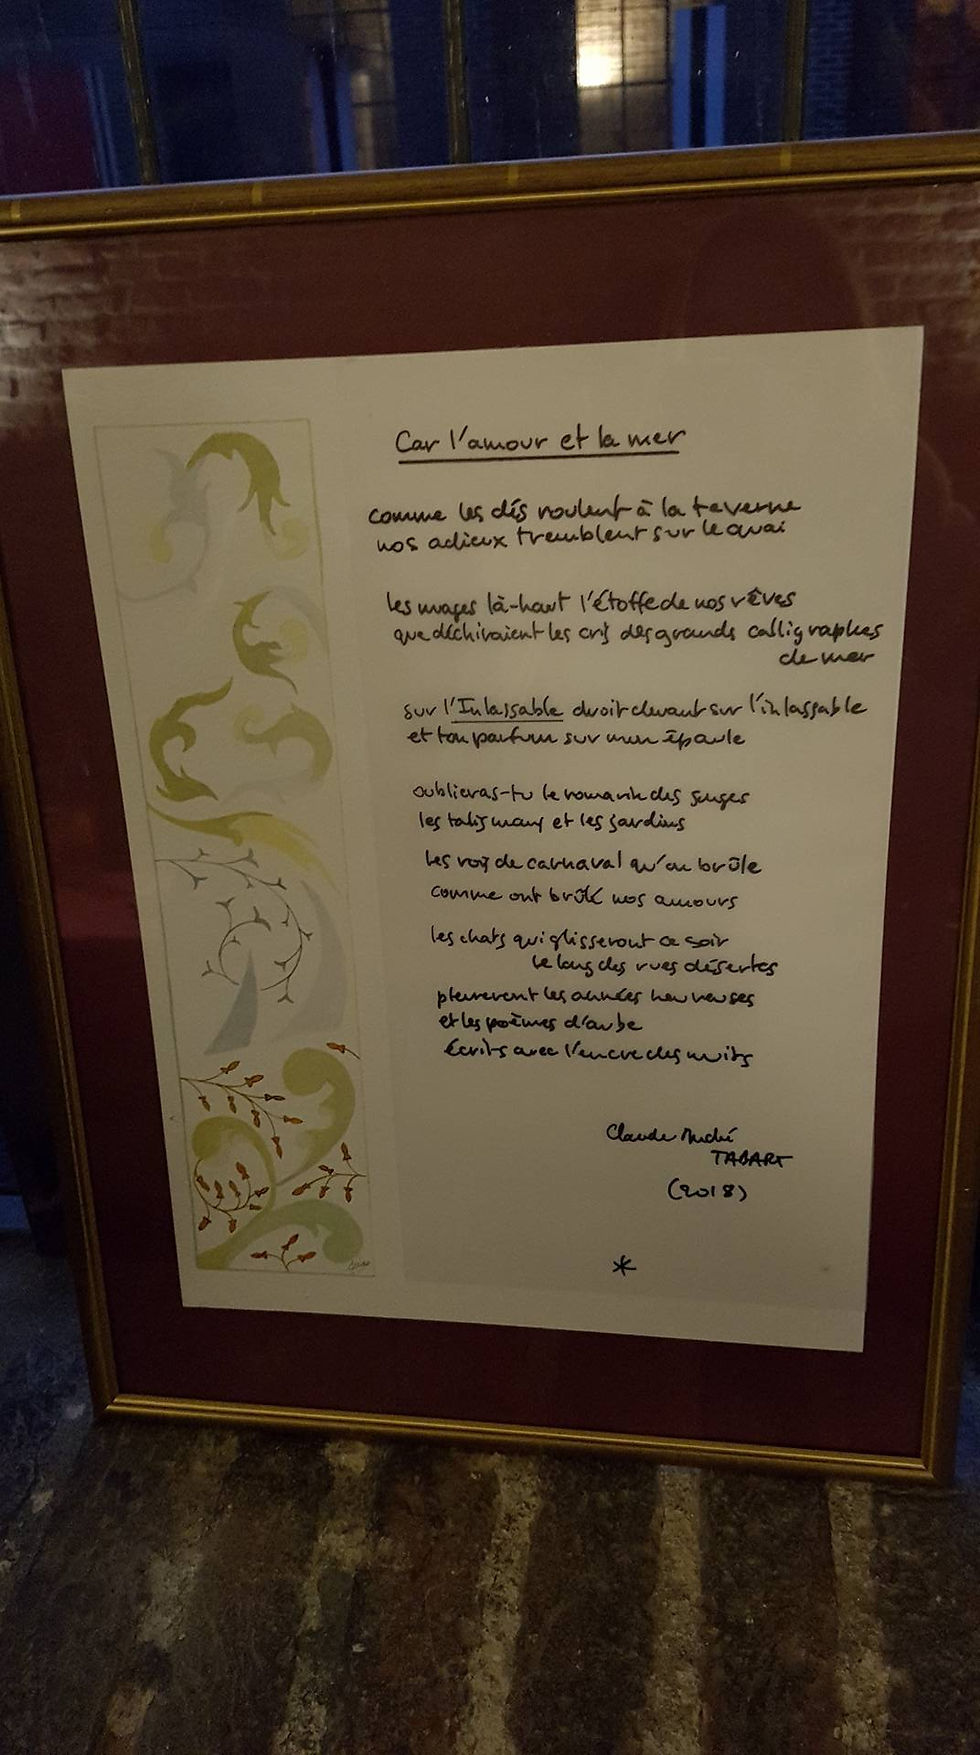 Car l'amour et la mer
comme les dés roulent à la taverne
nos adieux tremblent sur le quai
les nuages là-haut l'étoffe de nos rêves
que déchiraient les cris des grands calligraphes
de mer
sur l'Inlassable droit devant sur l'inlassable
et ton parfum sur mon épaule
oublieras-tu le romarin des songes
les talismans et les jardins
les rois de carnaval qu'on brûle
comme ont brûlé nos amours
les chats qui glisseront ce soir
le long des rues désertes
pleureront les années heureuses
et les poèmes d'aube
écrits avec l'encre des nuits
Claude André
TABART
(2018)
*